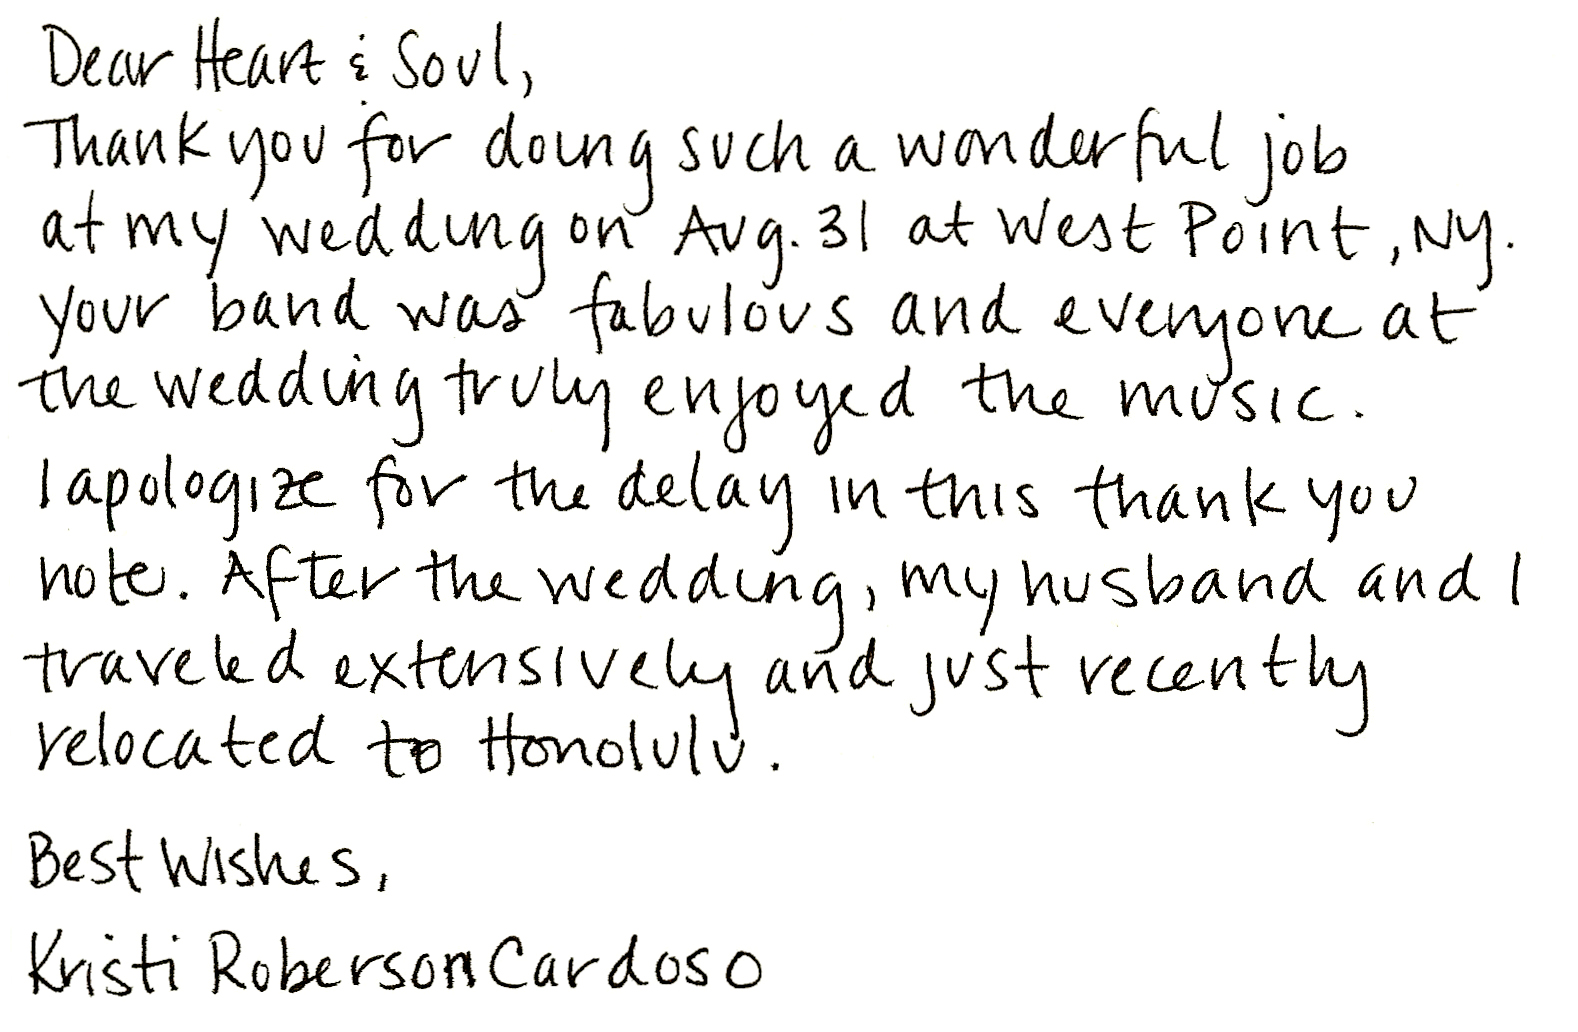 Dear Heart & Soul,
Thank you for doing such a wonderful job
at my wedding on Aug. 31 at West Point, NY.
Your band was fabulous and everyone at
the wedding truly enjoyed the music.
I apologize for the delay in this thank you
note. After the wedding, my husband and I
traveled extensively and just recently
relocated to Honolulu.
Best Wishes,
Kristi Roberson Cardoso